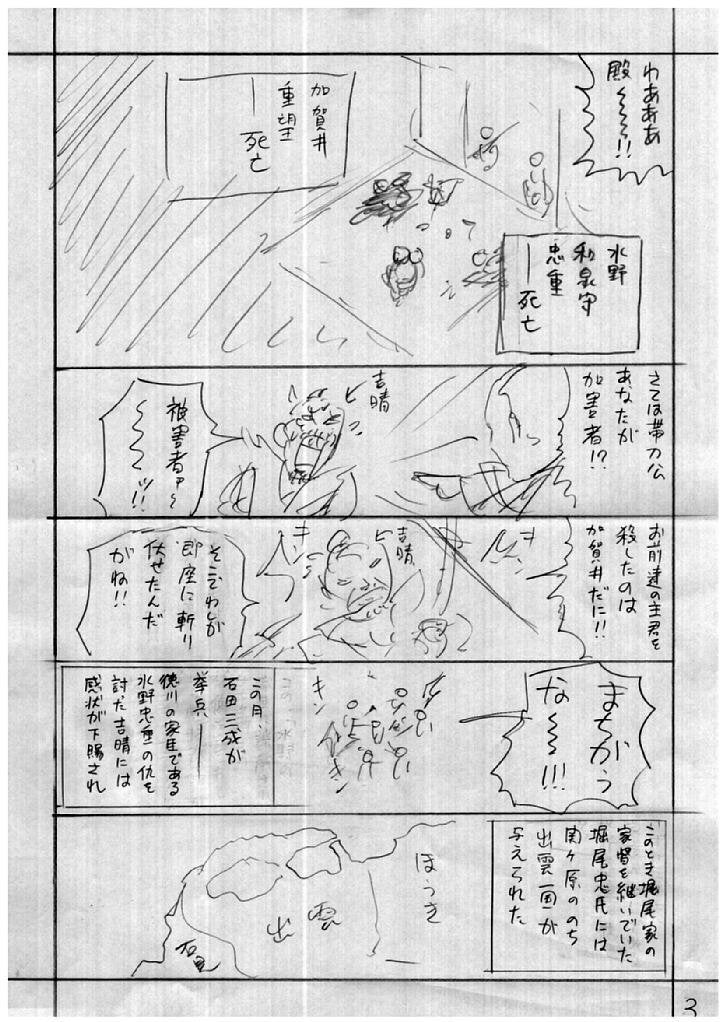 わあああ
殿〜〜〜!!
水野
和泉守
忠重
―死亡
加賀井
重望
―死亡
さては帯刀公
あなたが
加害者!?
吉晴
ヒ
被害者ァ〜
〜〜〜ッ!!
お前達の主君を
殺したのは
加賀井だに!!
キン
吉晴
キン
そこでわしが
即座に斬り
伏せたんだ
がね!!
まちがう
な〜〜!!!
キン
キン
この月、
石田三成が
挙兵―
徳川の家臣である
水野忠重の仇を
討った吉晴には
感状が下賜され
このとき堀尾家の
家督を継いでいた
堀尾忠氏には
関ヶ原ののち
出雲一国が
与えられた
ほうき
出雲
石見
3